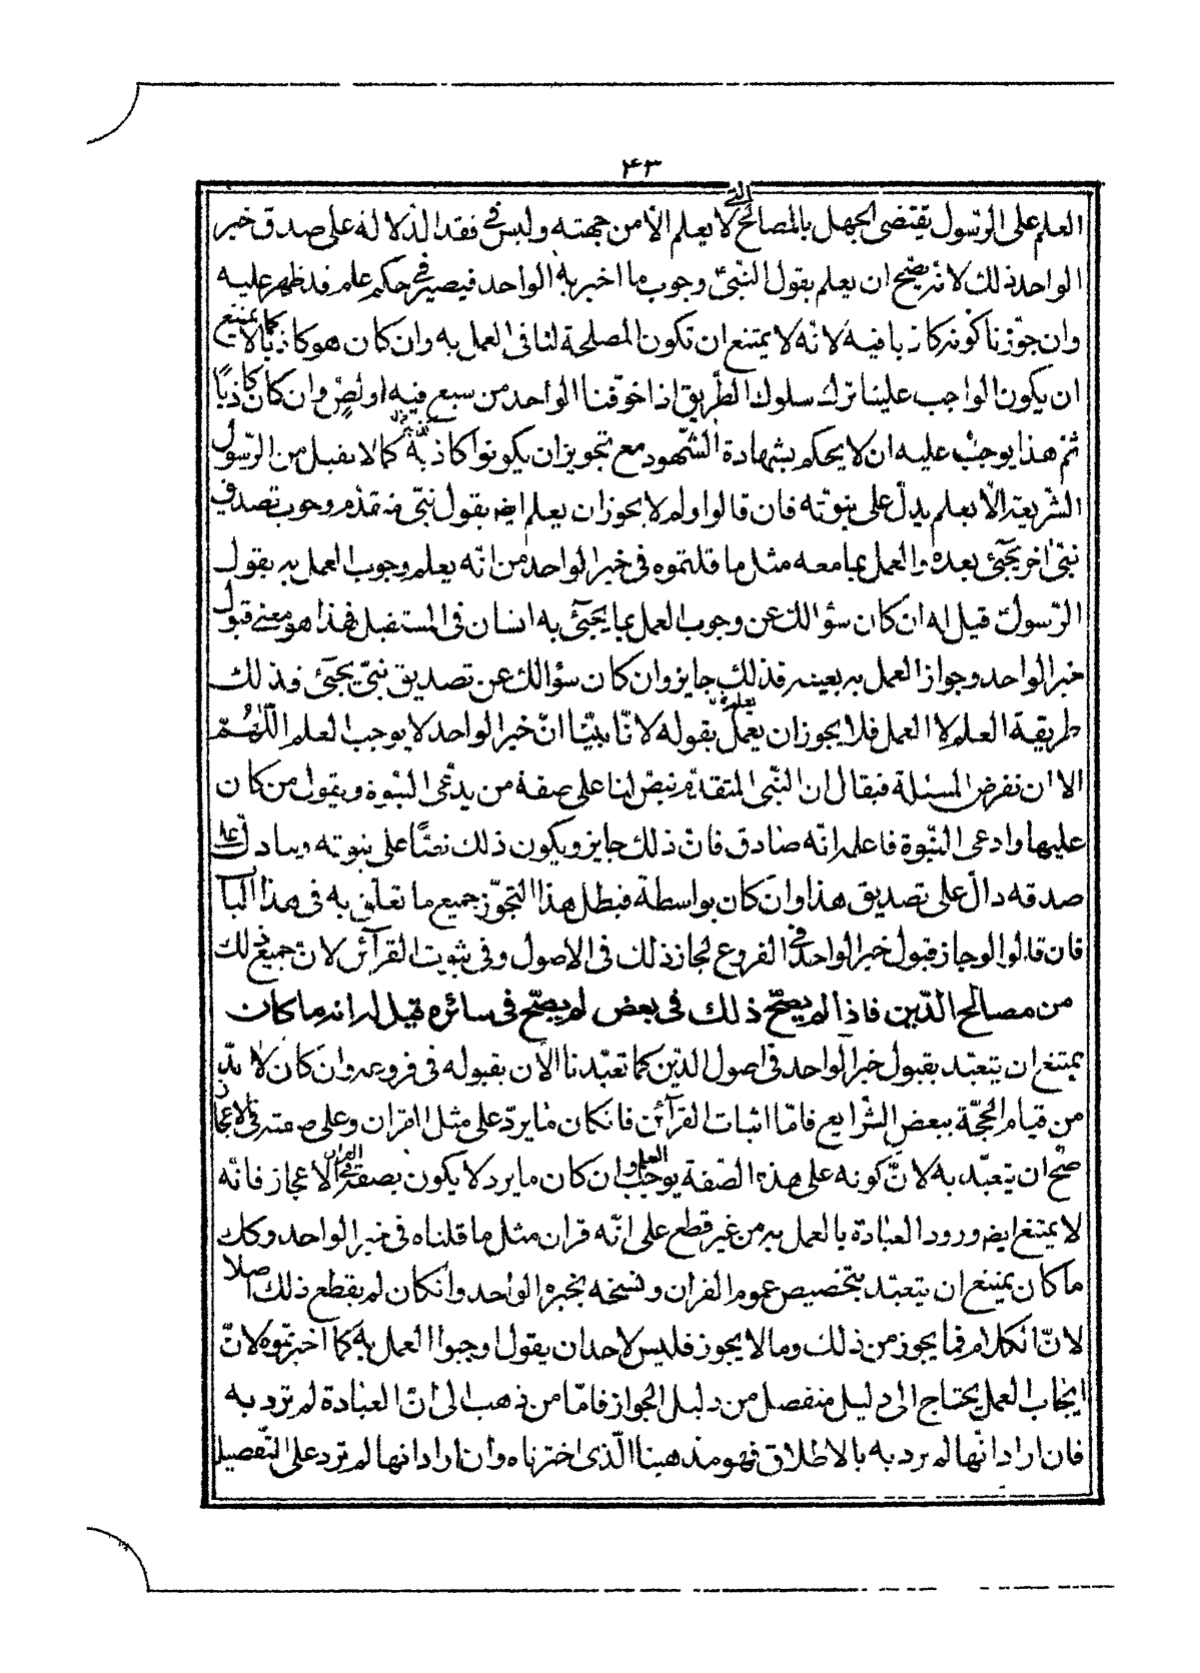 ۴۳
العلم على الرّسول يقتضى الجهل بالمصالح التى لا يعلم الّا من جهته وليس فى فقد الدّلالة على صدق خبر
الواحد ذلك لانّه يصحّ ان يعلم بقول النبىّ وجوب ما اخبر به الواحد فيصير فى حكم علم قد ظهر عليه
وان جوّزنا كونه كاذبا فيه لانّه لا يمتنع ان تكون المصلحة لنا فى العمل به وان كان هو كاذبًا كما لا يمتنع
ان يكون الواجب علينا ترك سلوك الطّريق اذا خوّفنا الواحد من سبع فيه او لصّ وان كان كاذبًا
ثم هذا يوجب عليه ان لا يحكم بشهادة الشّهود مع تجويز ان يكونوا كاذبة كما لا يقبل من الرّسول
الشّريعة الّا بعلم يدلّ على نبوّته فان قالوا ولم لا يجوز ان يعلم ايض بقول نبىّ قد تقدّم وجوب تصديق
نبىّ اخر يجئ بعده والعمل بما معه مثل ما قلتموه فى خبر الواحد من انّه يعلم وجوب العمل به بقول
الرّسول قيل له ان كان سؤالك عن وجوب العمل بما يجئ به انسان فى المستقبل فهذا هو معنى قبول
خبر الواحد وجواز العمل به بعينه فذلك جايز وان كان سؤالك عن تصديق نبىّ يجئ فذلك
طريقة العلم لا العمل فلا يجوز ان يعمل يعلم بقوله لانّا بيّنا انّ خبر الواحد لا يوجب العلم اللّهمّ
الا ان نفرض المسئلة فيقال ان النّبى المتقدّم نصّ لنا على صفة من يدّعى النبوة ويقول من كان
عليها وادعى النّبوة فاعلموا انّه صادق فانّ ذلك جايز ويكون ذلك نصًّا على نبوته
صدقه دالّ على تصديق هذا وان كان بواسطة فبطل هذا التجوّز جميع ما تعلّق به فى هذا الباب
فان قالوا لو جاز قبول خبر الواحد فى الفروع لجاز ذلك فى الاصول وفى ثبوت القرآئن لانّ جميع ذلك
من مصالح الدّين فاذا لم يصحّ ذلك فى بعض لم يصحّ فى سائره قيل له انه ما كان
يمتنع ان يتعبّد بقبول خبر الواحد فى اصول الدّين كما تعبّدنا الآن بقبوله فى فروعه وان كان لا بدّ
من قيام الحجّة ببعض الشّرايع فامّا اثبات القرآئن فان كان ما يردّ على مثل القران وعلى صفته فى الاعجاز
صحّ ان يتعبّد به لانّ كونه على هذه الصّفة يوجب العلم وان كان ما يرد لا يكون بصفة القران فى الاعجاز فانّه
لا يمتنع ايض ورود العبادة بالعمل به من غير قطع على انّه قران مثل ما قلناه فى خبر الواحد وكك
ما كان يمتنع ان يتعبّد بتخصيص عموم القران ونسخه بخبر الواحد وان كان لم يقطع ذلك اصلا
لانّ الكلام فيما يجوز من ذلك وما لا يجوز فليس لاحد ان يقول اوجبوا العمل به كما اخبرتموه لانّ
ايجاب العمل يحتاج الى دليل منفصل من دليل الجواز فامّا من ذهب الى انّ العبادة لم ترد به
فان اراد انّها لم يرد به بالاطلاق فهو مذهبنا الّذى اخترناه وان اراد انها لم ترد على التّفصيل